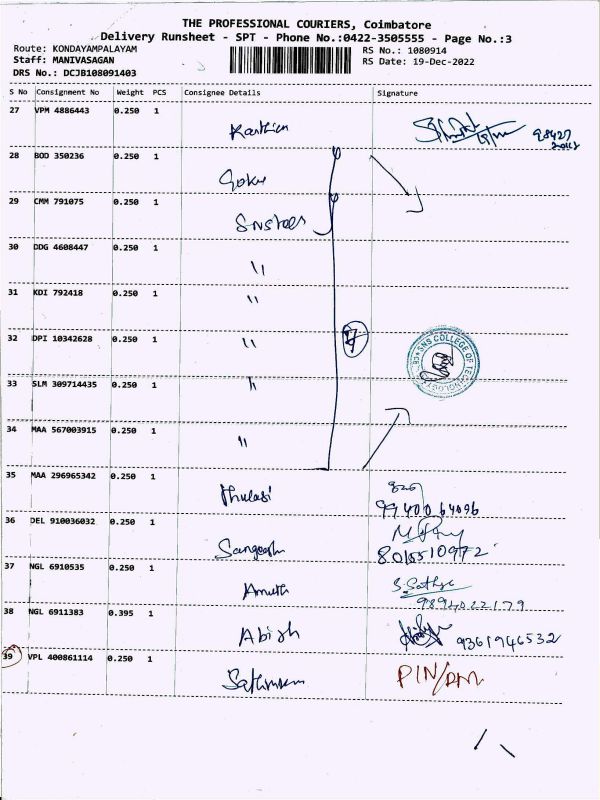 THE PROFESSIONAL COURIERS, Coimbatore
Delivery Runsheet - SPT - Phone No.:0422-3505555 - Page No.:3
Route: KONDAYAMPALAYAM
RS No.: 1080914
Staff: MANIVASAGAN
RS Date: 19-Dec-2022
DRS No.: DCJB108091403
S No Consignment No Weight PCS Consignee Details Signature
27 VPM 4886443 0.250 1 Karthick
28 BOD 350236 0.250 1 Goku
29 CMM 791075 0.250 1
30 DDG 4608447 0.250 1 "
31 KDI 792418 0.250 1 "
32 DPI 10342628 0.250 1 "
SNS COLLEGE OF TECHNOLOGY
33 SLM 309714435 0.250 1 "
34 MAA 567003915 0.250 1 "
35 MAA 296965342 0.250 1 Thulasi
36 DEL 910036032 0.250 1 8015510972
37 NGL 6910535 0.250 1 S. Sathya
9894022179
38 NGL 6911383 0.395 1 Abish 9361946532
39 VPL 400861114 0.250 1